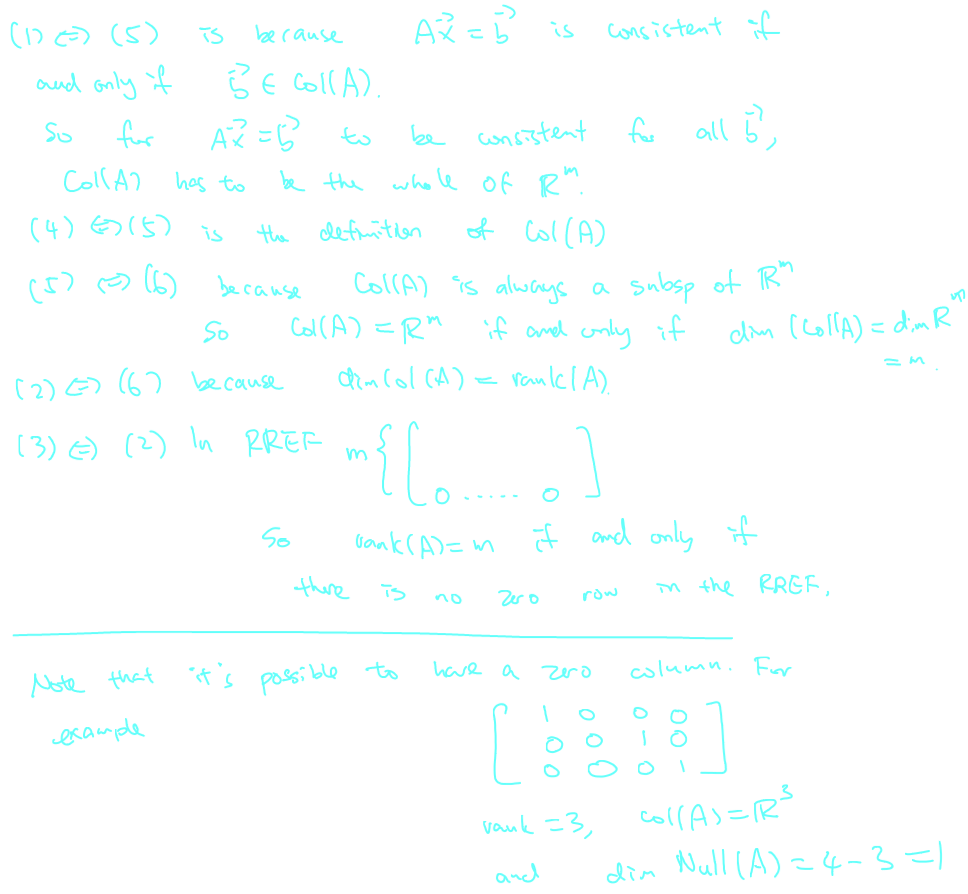 (1) ⇔ (5) is because A\vec{x} = \vec{b} is consistent if
and only if \vec{b} ∈ Col(A).
So for A\vec{x} = \vec{b} to be consistent for all \vec{b},
Col(A) has to be the whole of ℝ^m.
(4) ⇔ (5) is the definition of Col(A)
(5) ⇔ (6) because Col(A) is always a subsp of ℝ^m
So Col(A) = ℝ^m if and only if dim (Col(A) = dim ℝ^m
= m.
(2) ⇔ (6) because dim Col(A) = rank(A).
(3) ⇔ (2) In RREF m { [ 0 ..... 0 ]
So rank(A) = m if and only if
there is no zero row in the RREF.
Note that it's possible to have a zero column. For
example
[ 1 0 0 0
0 0 1 0
0 0 0 1 ]
rank = 3, col(A) = ℝ^3
and dim Null(A) = 4 - 3 = 1